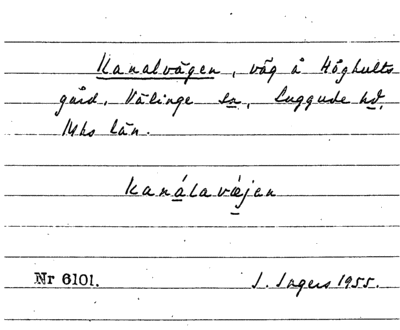 Kanalvägen, väg å Höghults
gård, Välinge sn, Luggude hd,
Mhs län.
kanálavæjen
Nr 6101. J. Ingers 1955.